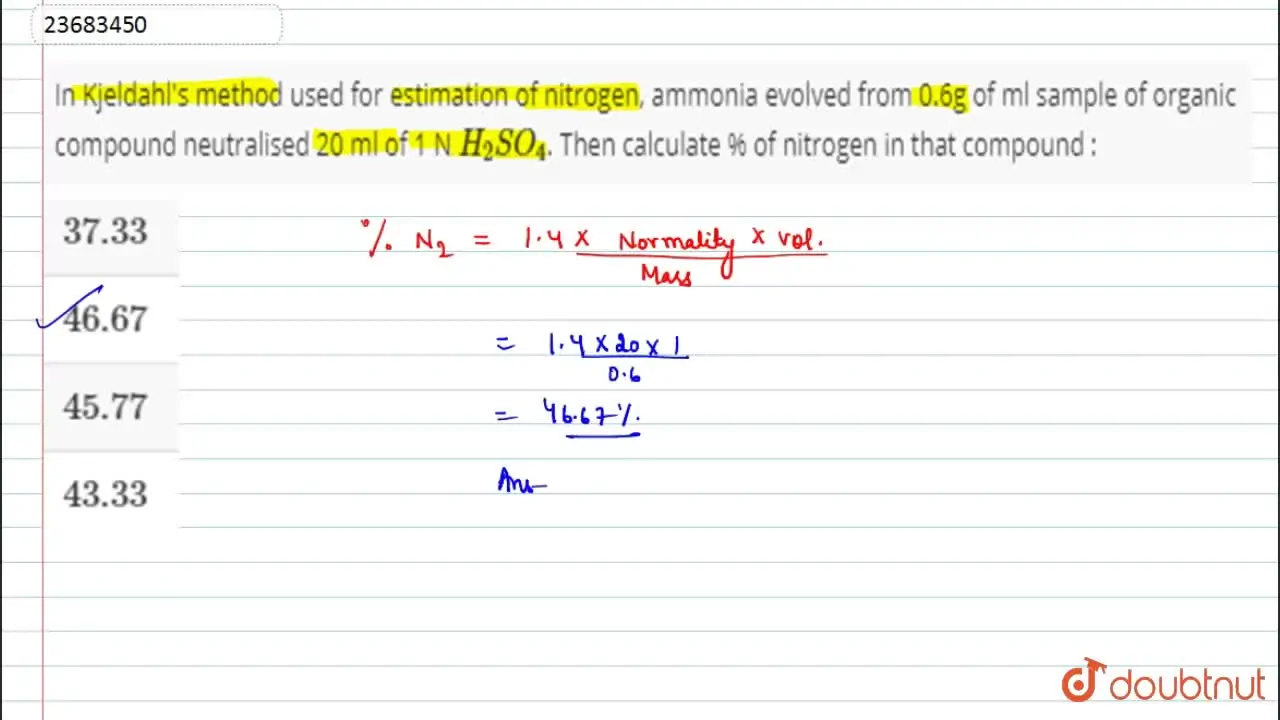 23683450
In Kjeldahl's method used for estimation of nitrogen, ammonia evolved from 0.6g of ml sample of organic
compound neutralised 20 ml of 1 N H₂SO₄. Then calculate % of nitrogen in that compound :
37.33
46.67
45.77
43.33
% N₂ = 1.4 × Normality × vol.
Mass
= 1.4 × 20 × 1
0.6
= 46.67%.
Ans
doubtnut